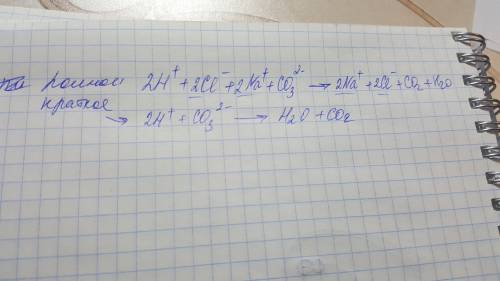 полной 2H⁺ + 2Cl⁻ + 2Na⁺ + CO₃²⁻ → 2Na⁺ + 2Cl⁻ + CO₂ + H₂O
краткое
→ 2H⁺ + CO₃²⁻ → H₂O + CO₂